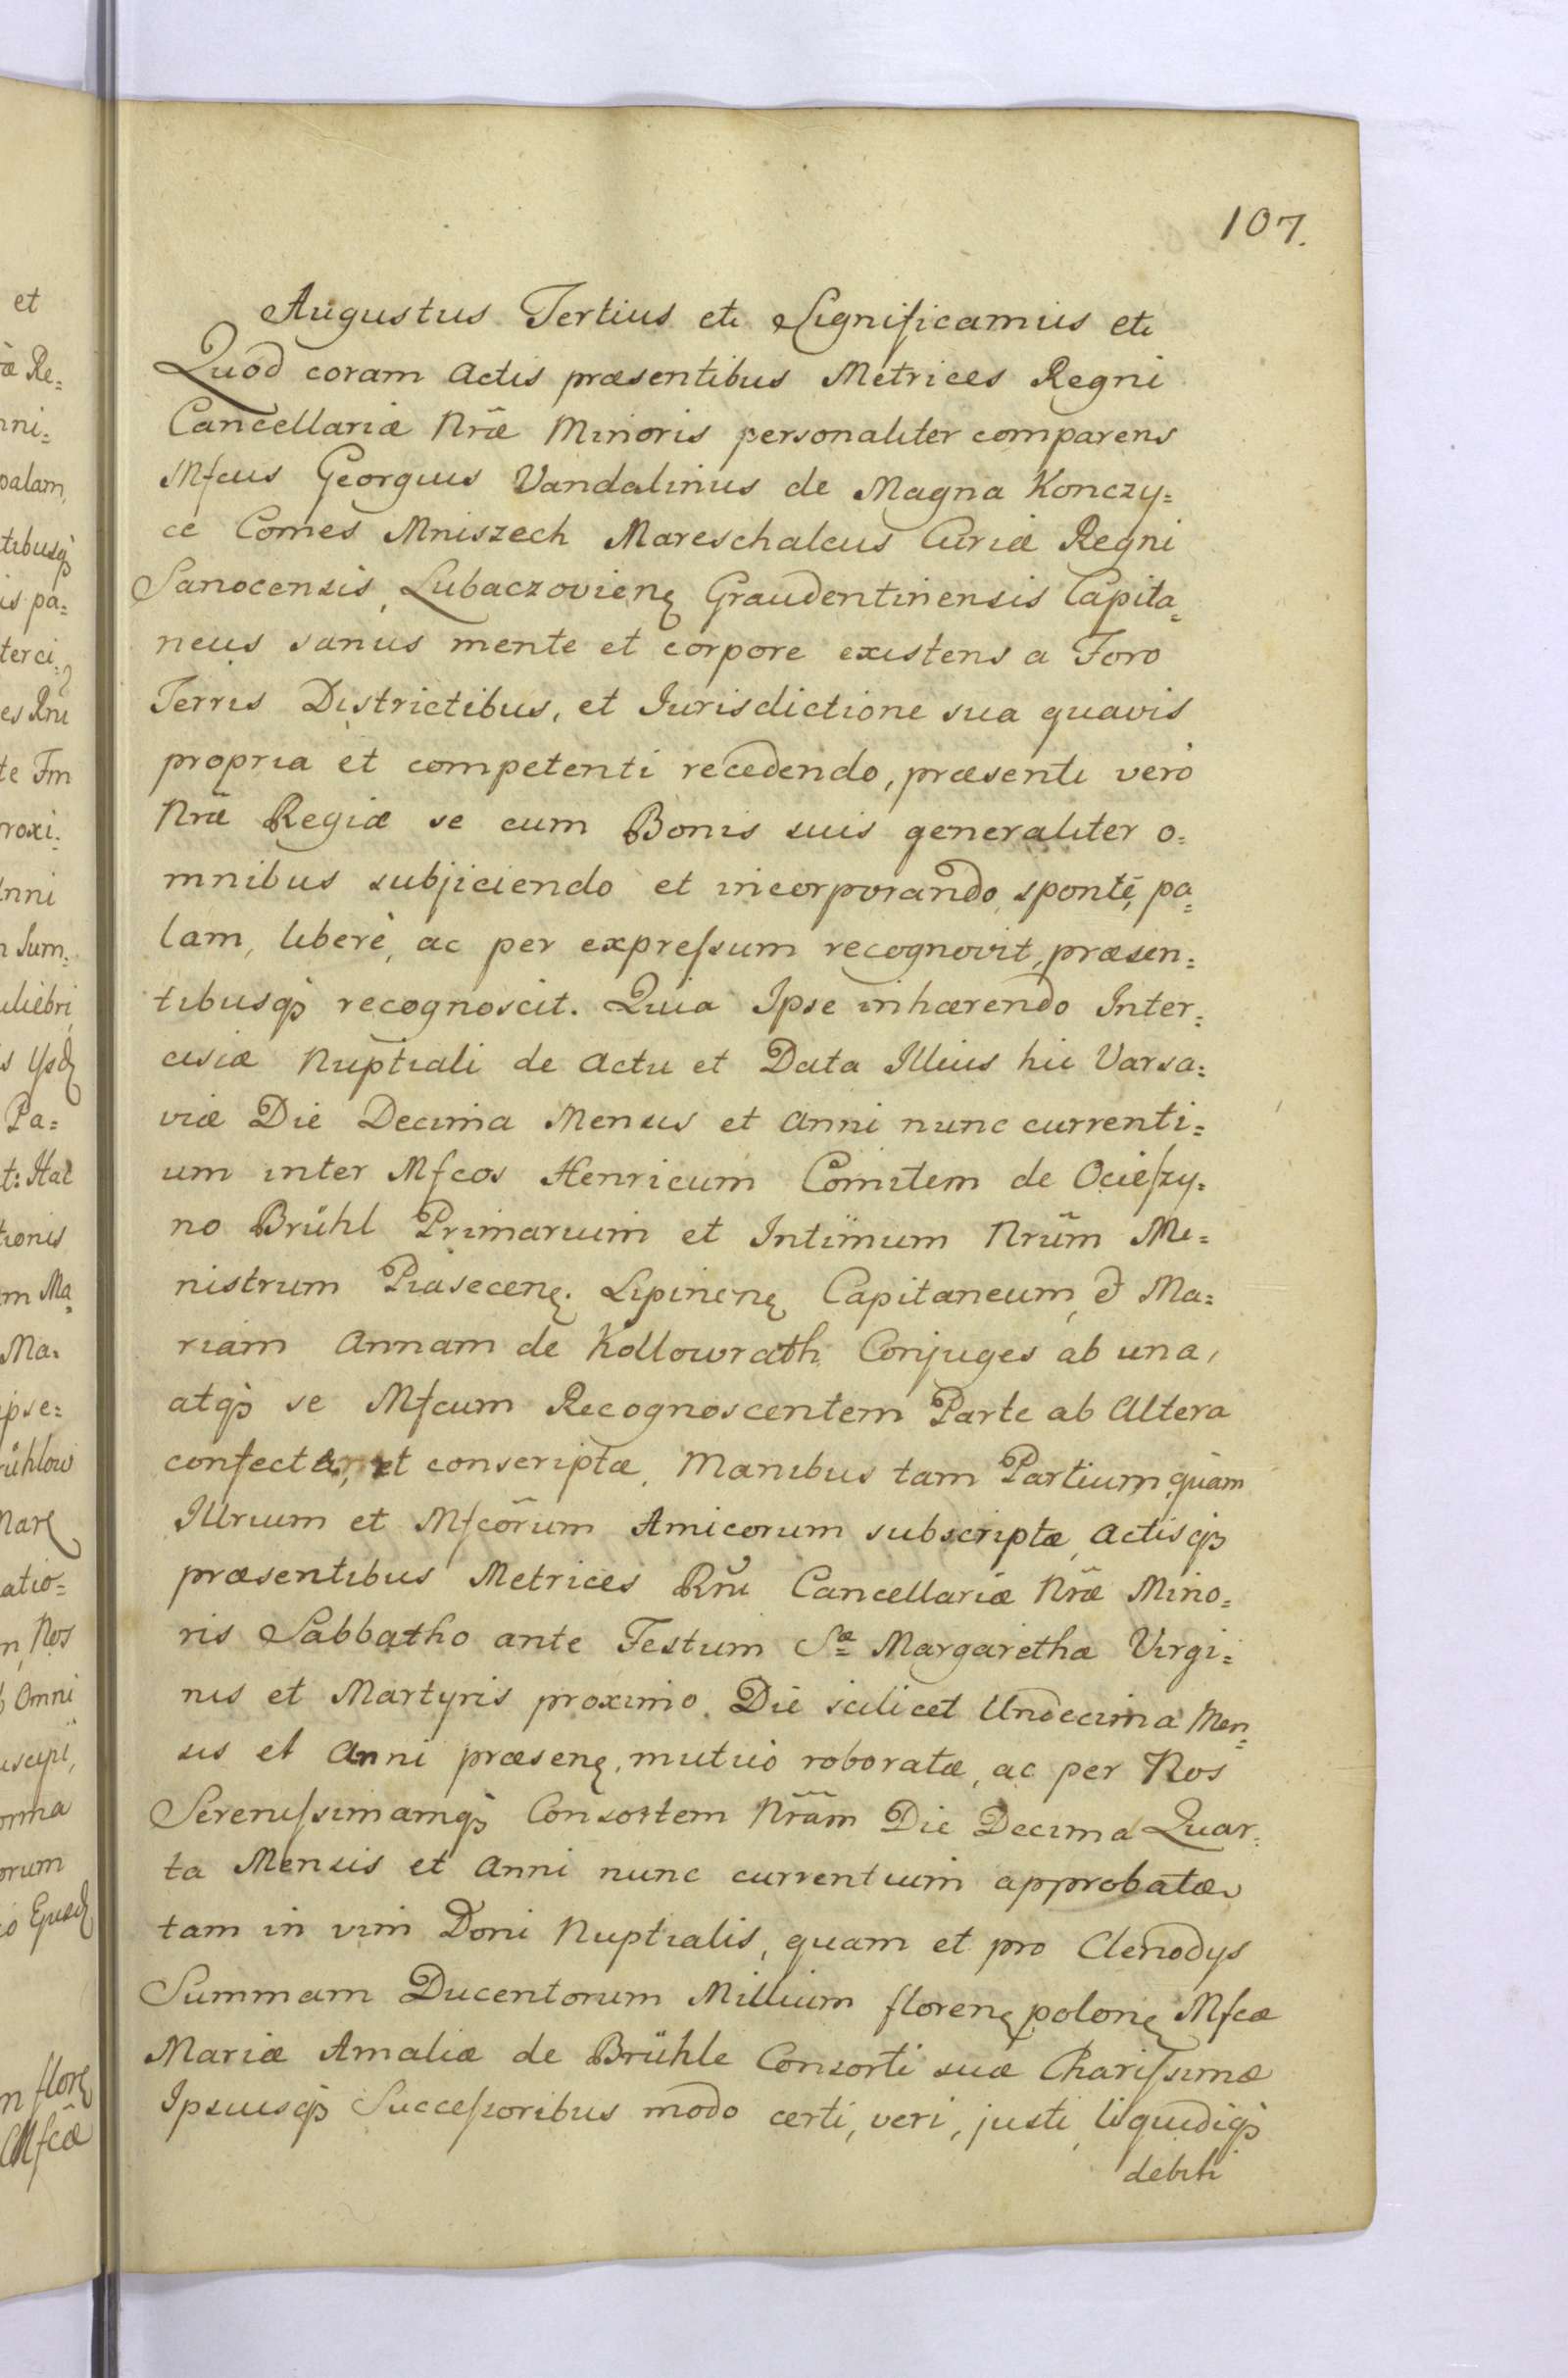 107.
Augustus Tertius etc Significamus etc
Quod coram Actis præsentibus Metrices Regni
Cancellariæ Nrae Minoris personaliter comparens
Mfcus Georgius Vandalinus de Magna Konczy=
ce Comes Mniszech Mareschalcus Curiæ Regni
Sanocensis, Lubaczovienę Graudentinensis Capita=
neus sanus mente et corpore existens a Foro
Terris Districtibus, et Jurisdictione sua quavis
propria et competenti recedendo, præsenti verò
Nrae Regiæ se cum Bonis suis generaliter o=
mnibus subjiciendo et incorporando, sponté, pa=
lam, liberè, ac per expreſsum recognovit, præsen=
tibusq recognoscit. Quia Ipse inhærendo Inter=
cisiæ Nuptiali de Actu et Data Illius hic Varsa=
viæ Die Decima Mensis et Anni nunc currenti=
um inter Mfcos Henricum Comitem de Ocieſzy=
no Brühl Primarium et Intimum Nrũm Mi=
nistrum Piasecenę. Lipinenę Capitaneum, & Ma=
riam Annam de Kollowrath Conjuges ab una,
atq se Mfcum Recognoscentem Parte ab Altera
confectæ, et conscriptæ, Manibus tam Partium quàm
Illrium et Mfcõrum Amicorum subscriptæ, Actisq
præsentibus Metrices Rni Cancellariæ Nrae Mino=
ris Sabbatho ante Festum Sæ Margarethæ Virgi=
nis et Martyris proximo. Die scilicet Undecima Men=
sis et Anni præsenę, mutuò roboratæ, ac per Nos
Sereniſsimamq Consortem Nrãm Die Decima Quar=
ta Mensis et Anni nunc currentium approbatæ,
tam in vim Doni Nuptialis, quam et pro Clenodys
Summam Ducentorum Millium florenę polonę Mfcæ
Mariæ Amaliæ de Brühle Consorti suæ Chariſsimæ
Ipsiusq Succeſsoribus modo certi, veri, justi, liquidiq
debiti